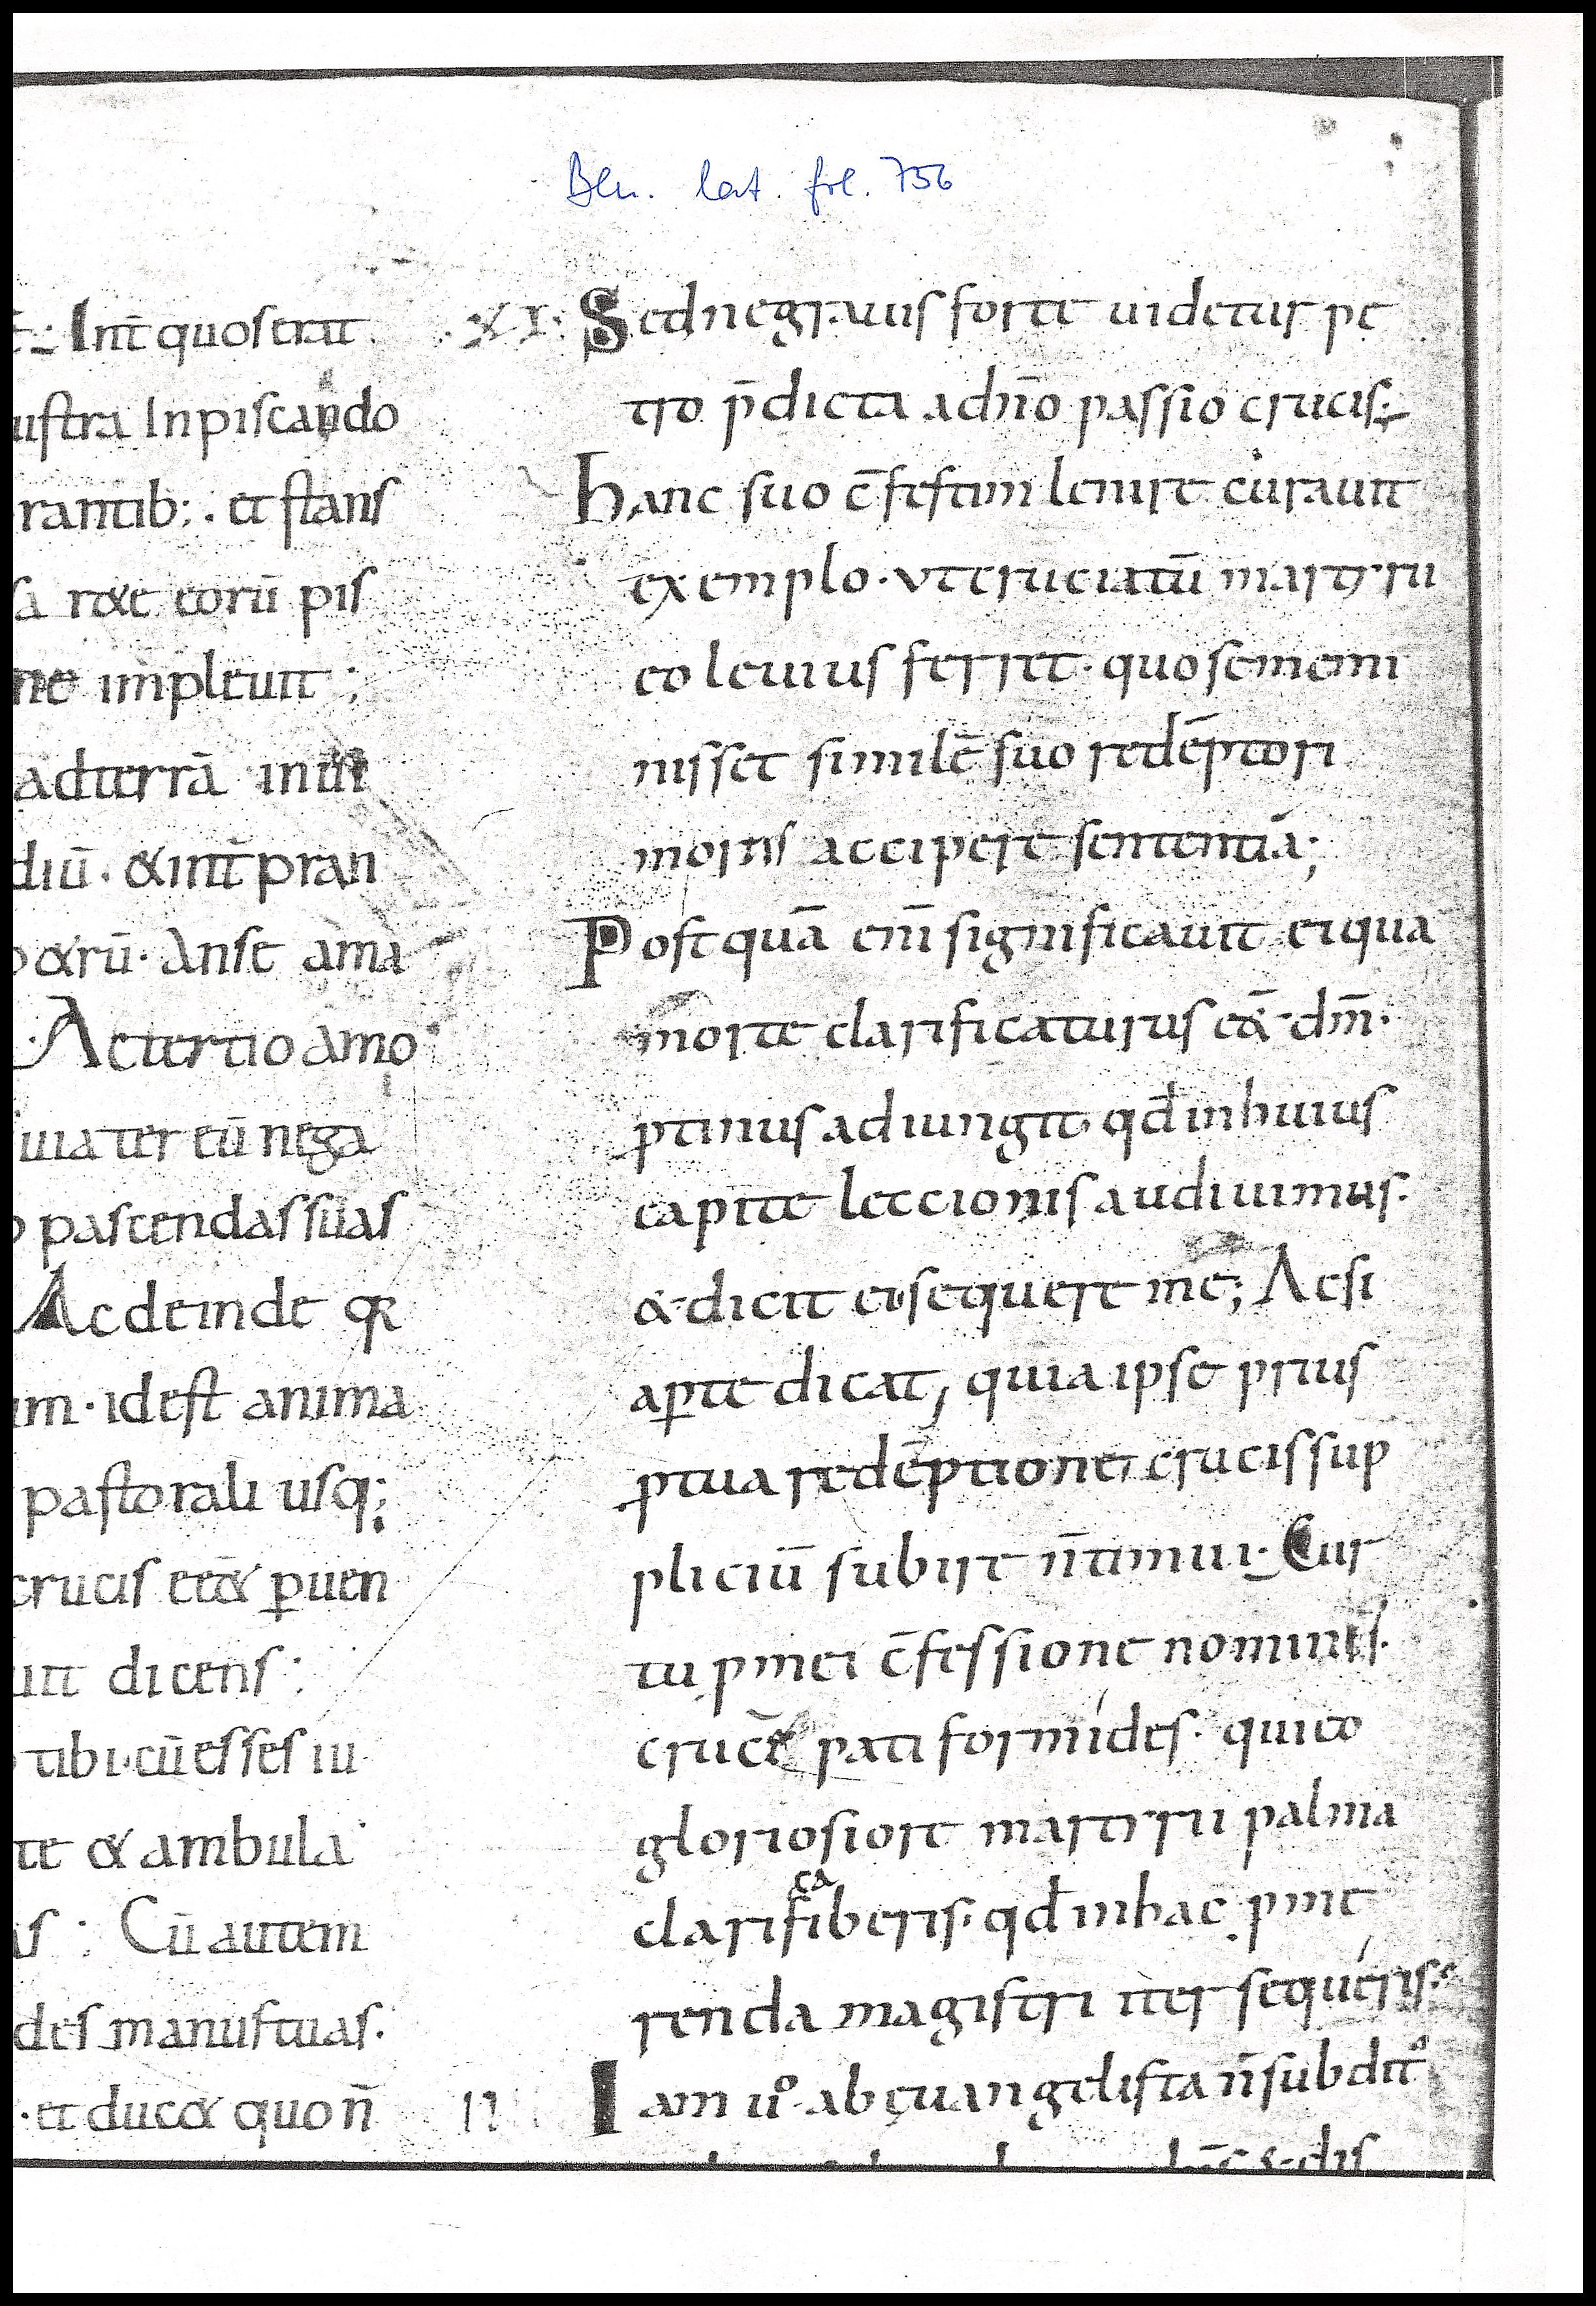 Bln. lat. fol. 756
Int̄ quos erat
ustra Inpiscando
rantib; . et stans
sa r&e eorū pis
ne impleuit ;
adterrā
diū . &int̄ pran
o&rū . Anse ama
. Actertio amo
uia ter eū nega
o pascendas suas
Ac deinde qr
im . id est anima
pastorali usq;
crucis eēt& ꝑuen
uit dicens :
o tibi . cū esses iu
te & ambula
is : Cū autem
des manus tuas .
. et duc& quo n̄
. XI . Sed negrauis forte uidetur pe
tro p̄dicta ad hīo passio crucis ;
hanc suo c̄festim lenire curauit
exemplo . vt cruciatū martyrii
eo leuius ferret . quo se memi
nisset similē suo redēptori
mortis accipere sententiā ;
Post quā enī significauit ei qua
morte clarificaturus eēt dm̄ .
ꝓtinus adiungit qđ in huius
capite leccionis audiuimus .
& dicit ei sequere me ; Ac si
aꝑte dicat , quia ipse prius
ꝓ tua redēptione crucis sup
pliciū subire n̄ timui . Cur
tu ꝓ mei c̄fessione nominis .
crucē pati formídes . qui eo
gloriosiore martyrii palma
clarificaberis . qđ in hac ꝓme
renda magistri iter sequéris .
Iam uº . ab euangelista n̄ subdit᷒